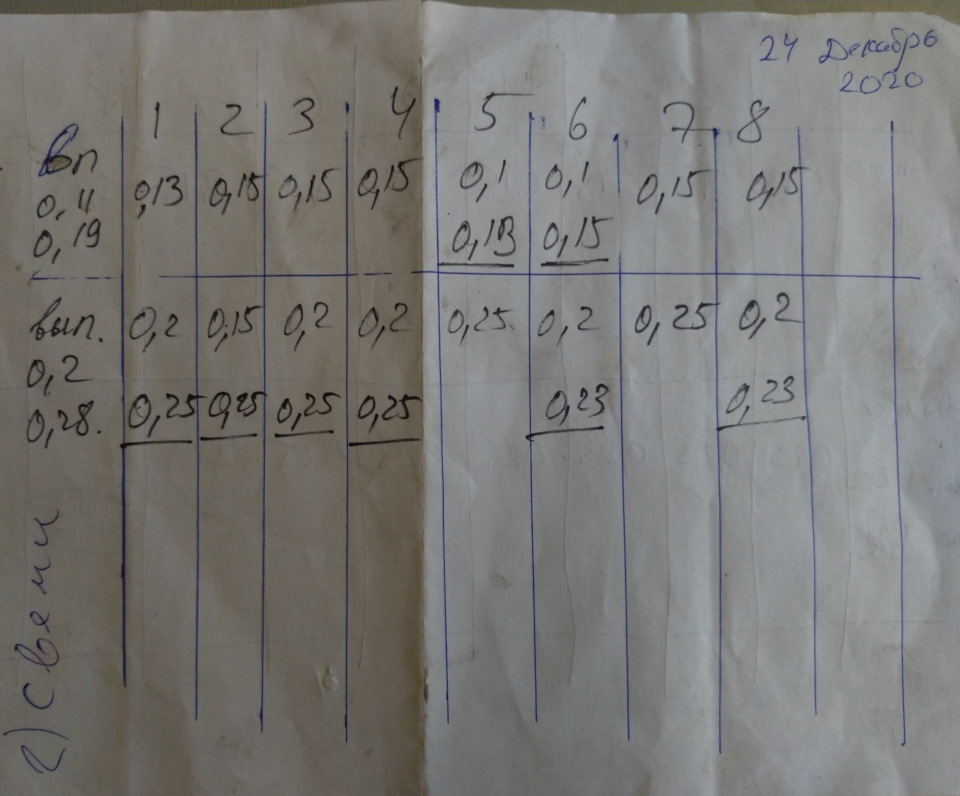 24 Декабрь
2020
1 2 3 4 5 6 7 8
вп
0,11 0,13 0,15 0,15 0,15 0,1 0,1 0,15 0,15
0,19 0,13 0,15
вып. 0,2 0,15 0,2 0,2 0,25 0,2 0,25 0,2
0,2
0,28. 0,25 0,25 0,25 0,25 0,23 0,23
2) Свечи